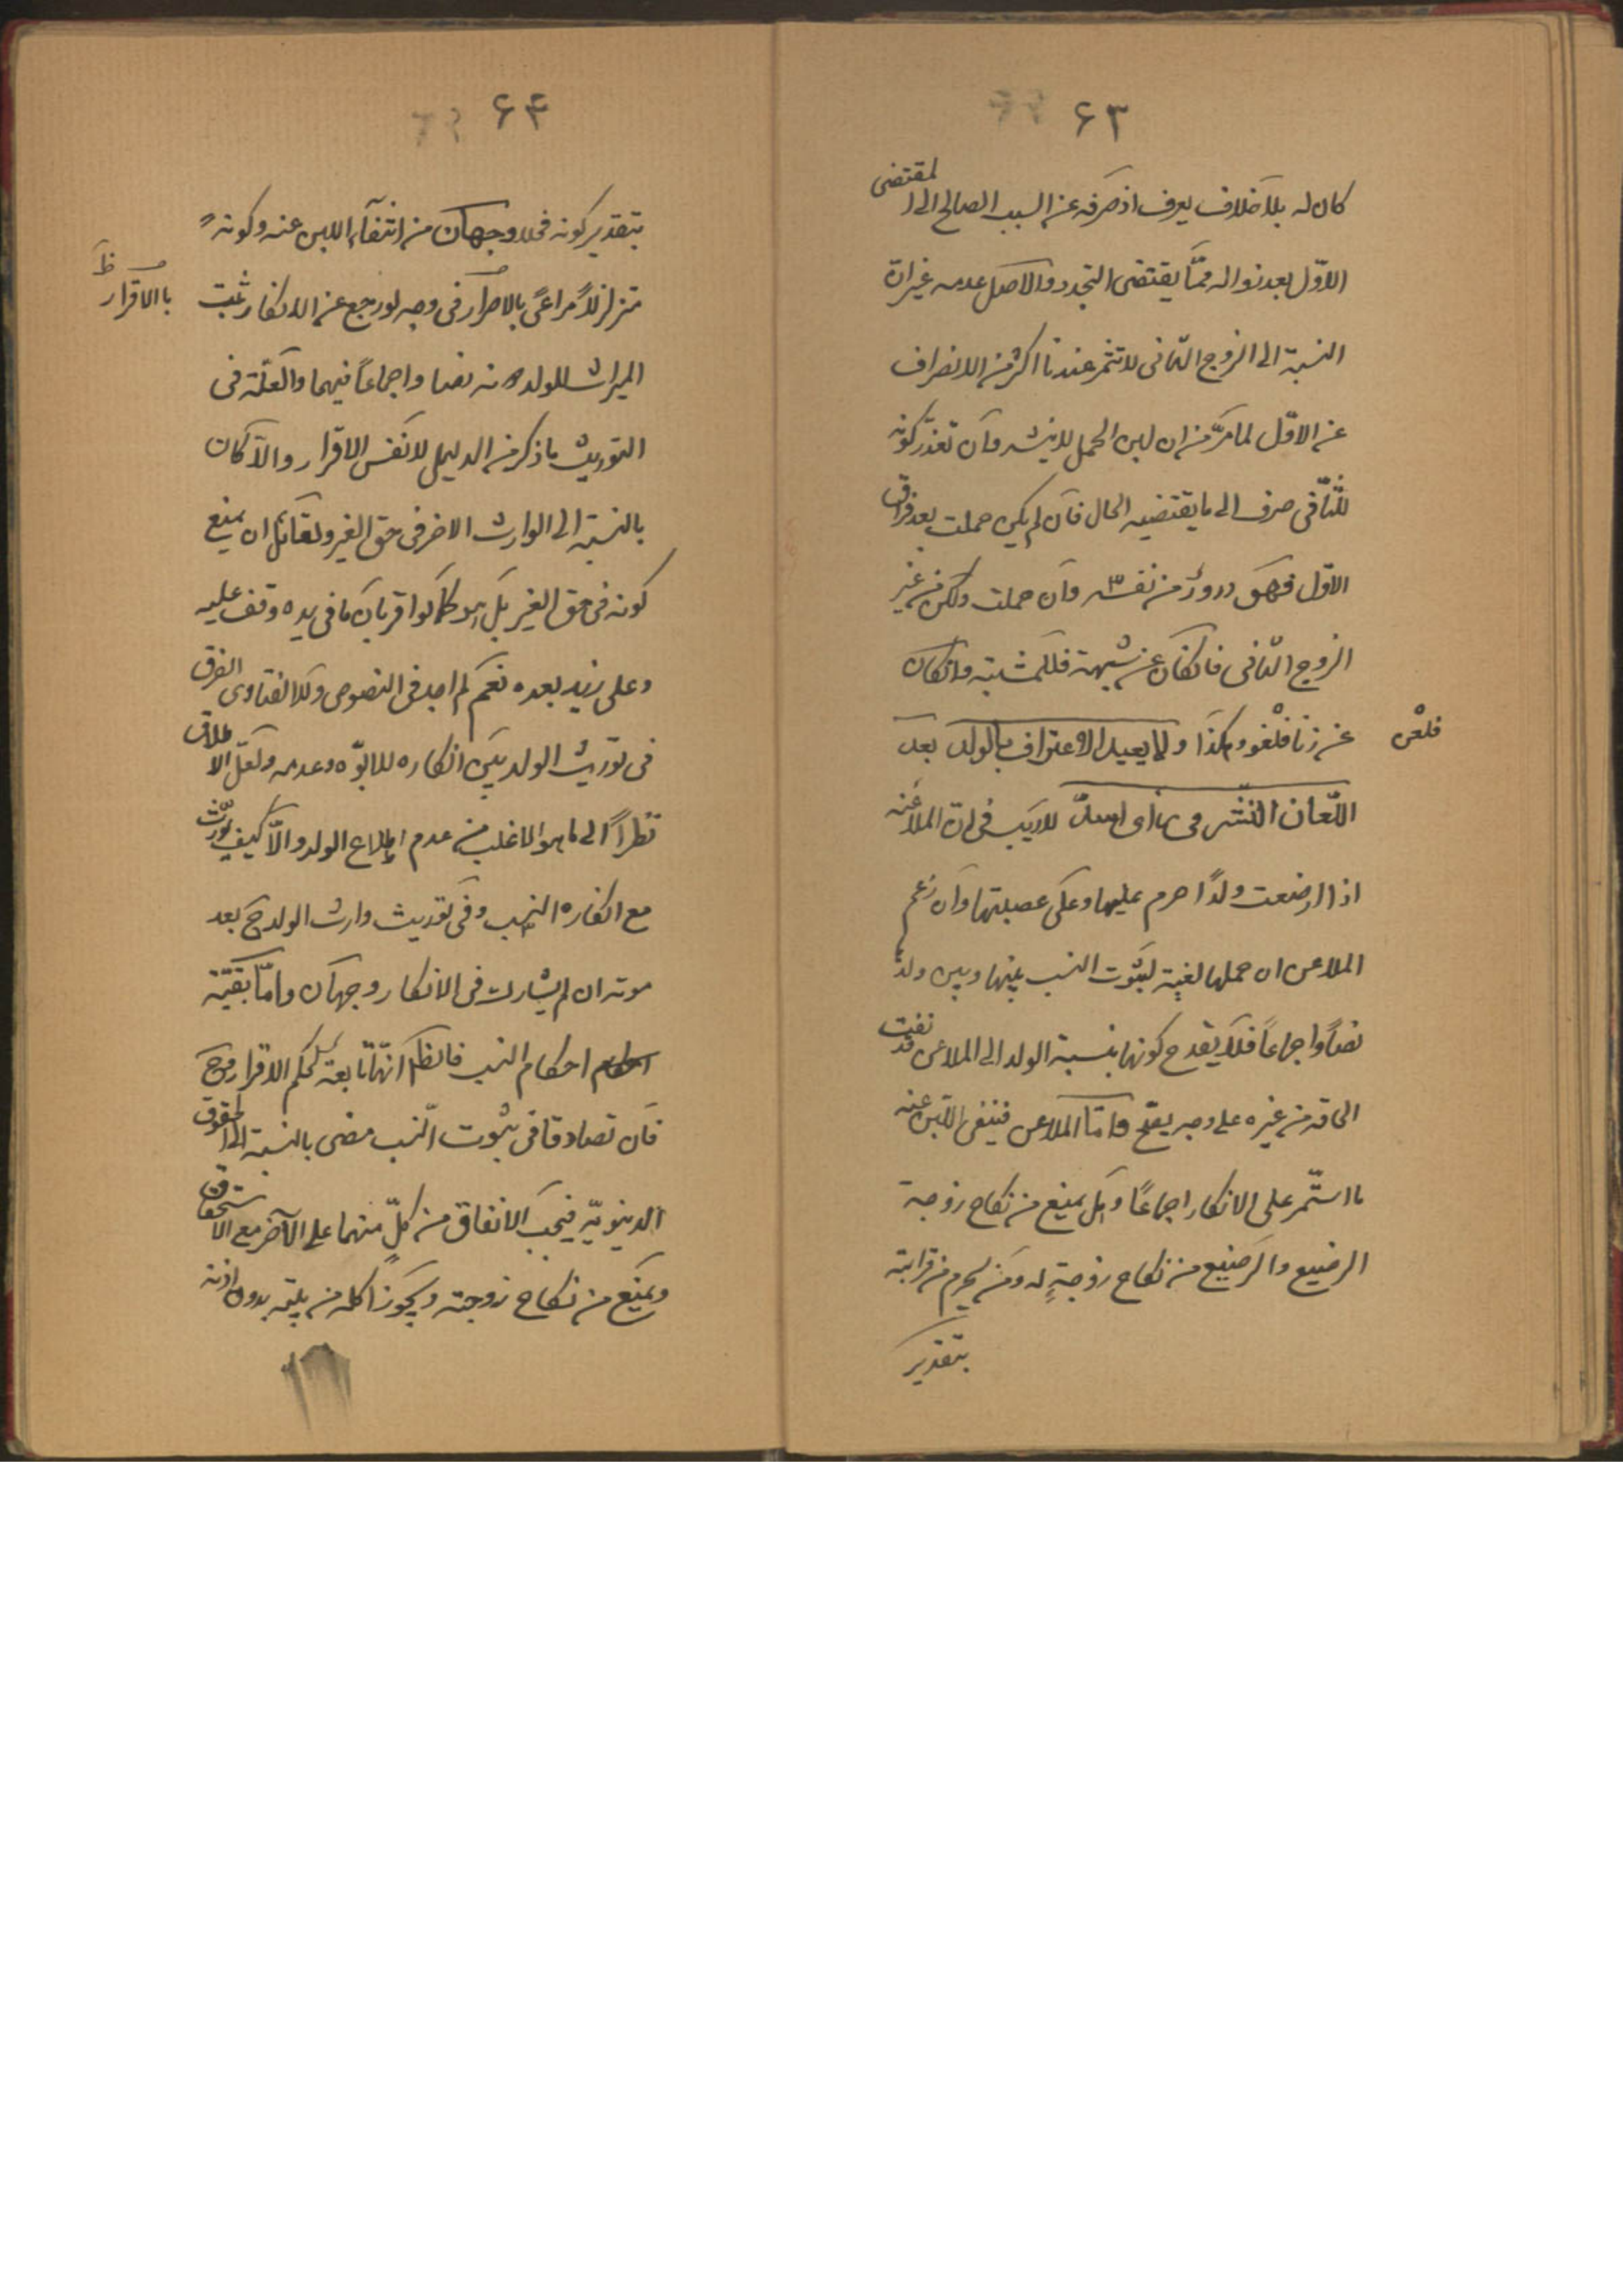 ۶۳
كان له بلا خلاف يعرف اذ صرفه عن السبب الصالح الى المقتضى
الاوّل بعد زواله ممّا يقتضى التجدد والاصل عدمه غير انّ
النسبة الى الزوج الثانى لا تثمر عندنا اكثر من الانصراف
عن الاوّل لما مرّ من ان لبن الحمل لا ينشر وان تعذّر كونه
للثّانى صرف الى ما يقتضيه الحال فان لم يكن حملت بعد فراق
الاوّل فهو درورٌ من نفسه وان حملت ولكن من غير
الزوج الثانى فان كان عن شبهة فللمشتبه وان كان
عن زنا فلغو وهكذا ولما يعيد الاعتراف بالولد بعد
فلغى
اللّعان النّشر لا ريب فى انّ الملاعنه
اذا ارضعت ولدًا حرم عليها وعلى عصبتها وان زعم
الملاعن ان حملها لغية لثبوت النسب بينها وبين ولد
نصًا واجماعًا فلا يقدح كونها بنسبة الولد الى الملاعن قد نفت
الحاقه من غيره على وجه يصحّ وامّا الملاعن فينفى اللبن عنه
ما استمّر على الانكار اجماعًا وهل يمنع من نكاح زوجة
الرضيع والرضيع من نكاح زوجةٍ له ومن يحرم من قرابته
بتقدير
۶۴
بتقدير كونه فحلا وجهان من انتفآء اللبن عنه وكونه
متزلزلاً مراعىً بالاصرار فى وجه لو رجع عن الانكار ثبت
بالاقرار ظ
الميراث للولد منه نصا واجماعًا فيهما والعلّة فى
التوريث ما ذكر من الدليل لا نفس الاقرار والّا كان
بالنسبة الى الوارث الاخر فى حق الغير ولقائل ان يمنع
كونه فى حق الغير بل هو كما لو اقر بانّ ما فى يده وقف عليه
وعلى زيد بعده نعم لم اجد فى النصوص ولا الفتاوى الفرق
فى توريث الولد بين انكاره للابوّه وعدمه ولعلّ الاطلاق
نظراً الى ما هو الاغلب من عدم اطلاع الولد والّا كيف يورّث
مع انكاره النسب وفى توريث وارث الولد ح بعد
موته ان لم يشارك فى الانكار وجهان وامّا بقيّة
احكام النسب فالظ انّها تابعة لحكم الاقرار وح
فان تصادقا فى ثبوت النّسب مضى بالنسبة الى الحقوق
الدينويّه فيجب الانفاق من كلّ منهما على الآخر مع الاستحقاق
ويمنع من نكاح زوجته ويجوز اكله من بيته بدون اذنه